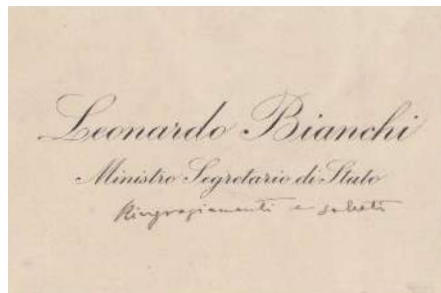 Leonardo Bianchi
Ministro Segretario di Stato
Ringraziamenti e saluti